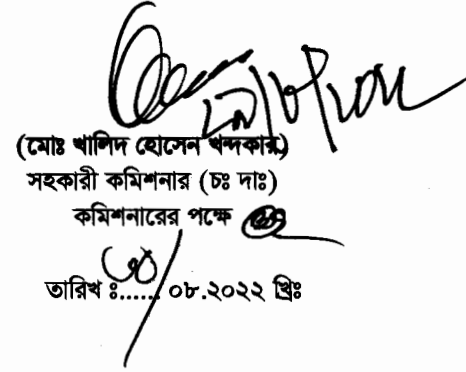 (মোঃ খালিদ হোসেন খন্দকার)
সহকারী কমিশনার (চঃ দাঃ)
কমিশনারের পক্ষে
তারিখ ঃ...... ০৮.২০২২ খ্রিঃ